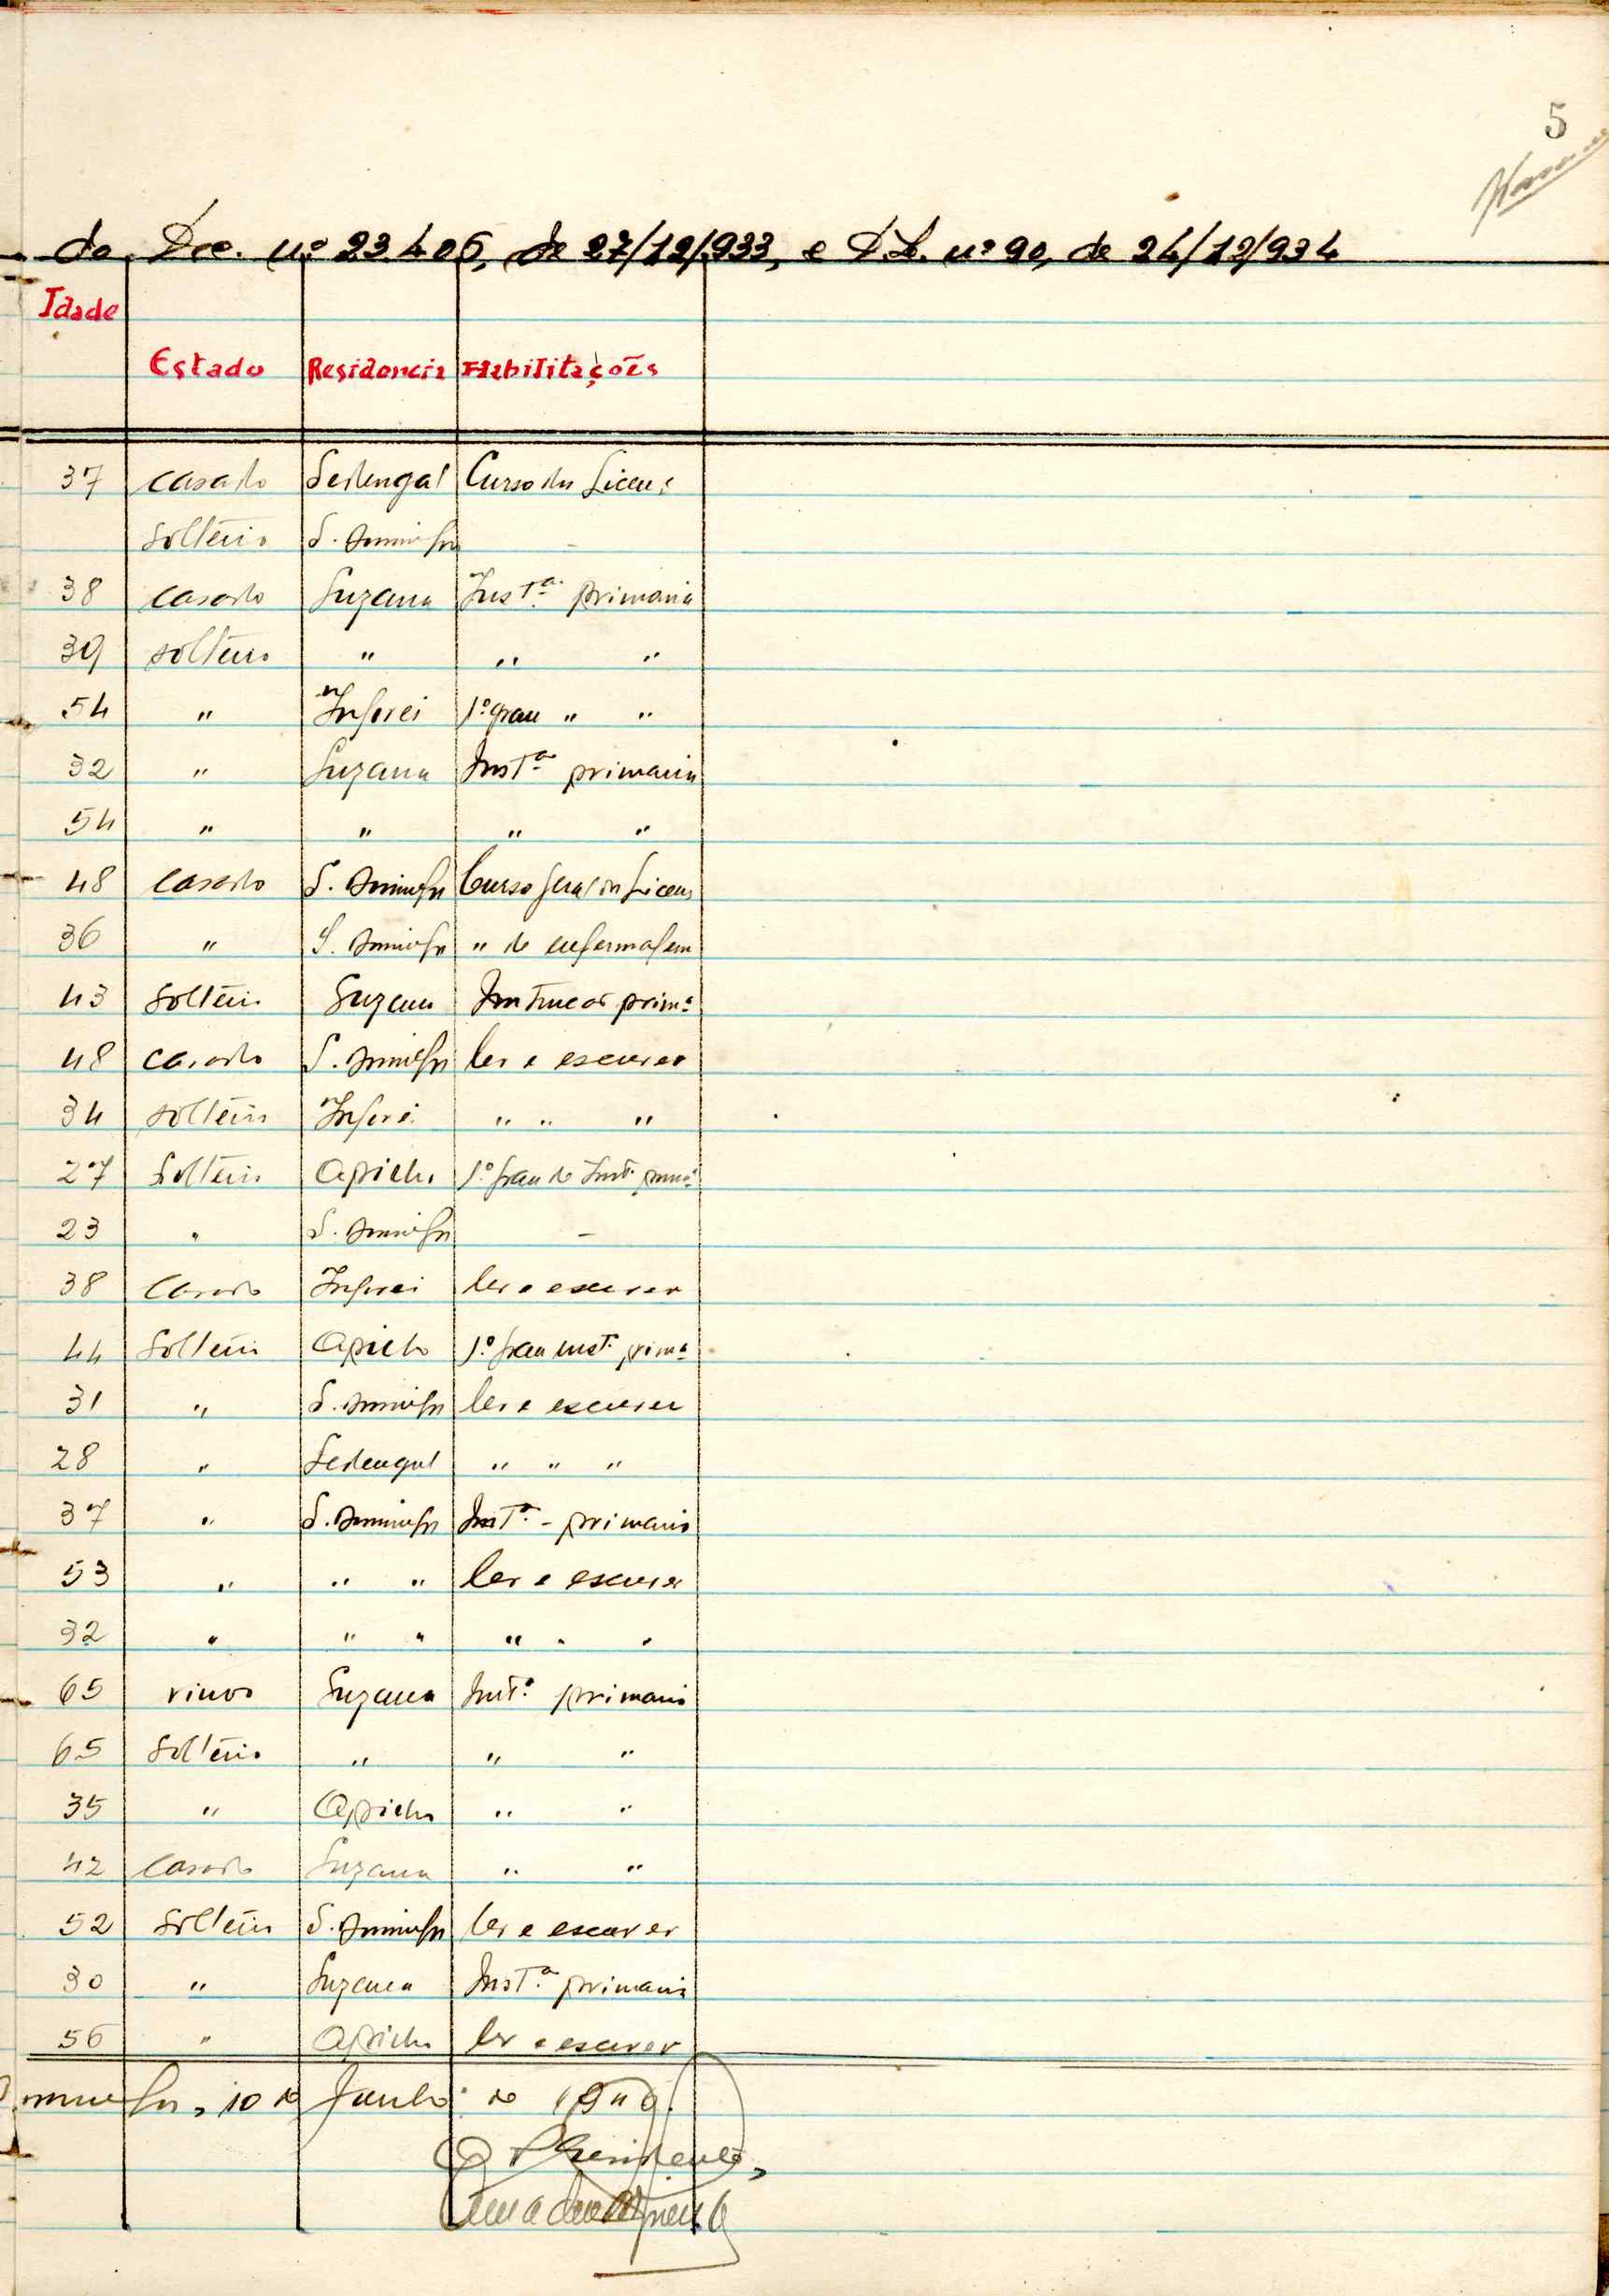 5
do Dec. nº 23.406, de 27/12/933, e D.L. nº 90, de 24/12/934
Idade
Estado Residencia Habilitações
37 casado Sedengal Curso dos Liceus
solteiro S. Domingos -
38 casado Suzana Inst.ª primaria
39 solteiro " " "
54 " Inforei 1º grau " "
32 " Suzana Inst.ª primaria
54 " " " "
48 casado S. Domingos Curso geral dos Liceus
36 " S. Domingos " de enfermagem
43 solteiro Suzana Instrucão prim.ª
48 casado S. Domingos ler e escrever
34 solteiro Inforei " " "
27 solteiro Apilho 1º grau de Inst. prim.ª
23 " S. Domingos -
38 casado Inforei ler e escrever
44 solteiro Apilho 1º grau inst. prim.ª
31 " S. Domingos ler e escrever
28 " Sedengal " " "
37 " S. Domingos Inst.ª - primaria
53 " " " ler e escrever
32 " " " " " "
65 viuvo Suzana Inst.ª primaria
65 solteiro " " "
35 " Apilho " "
42 casado Suzana " "
52 solteiro S. Domingos ler e escrever
30 " Suzana Inst.ª primaria
56 " Apilho ler e escrever
10 de Junho de 1946.
O Presidente,